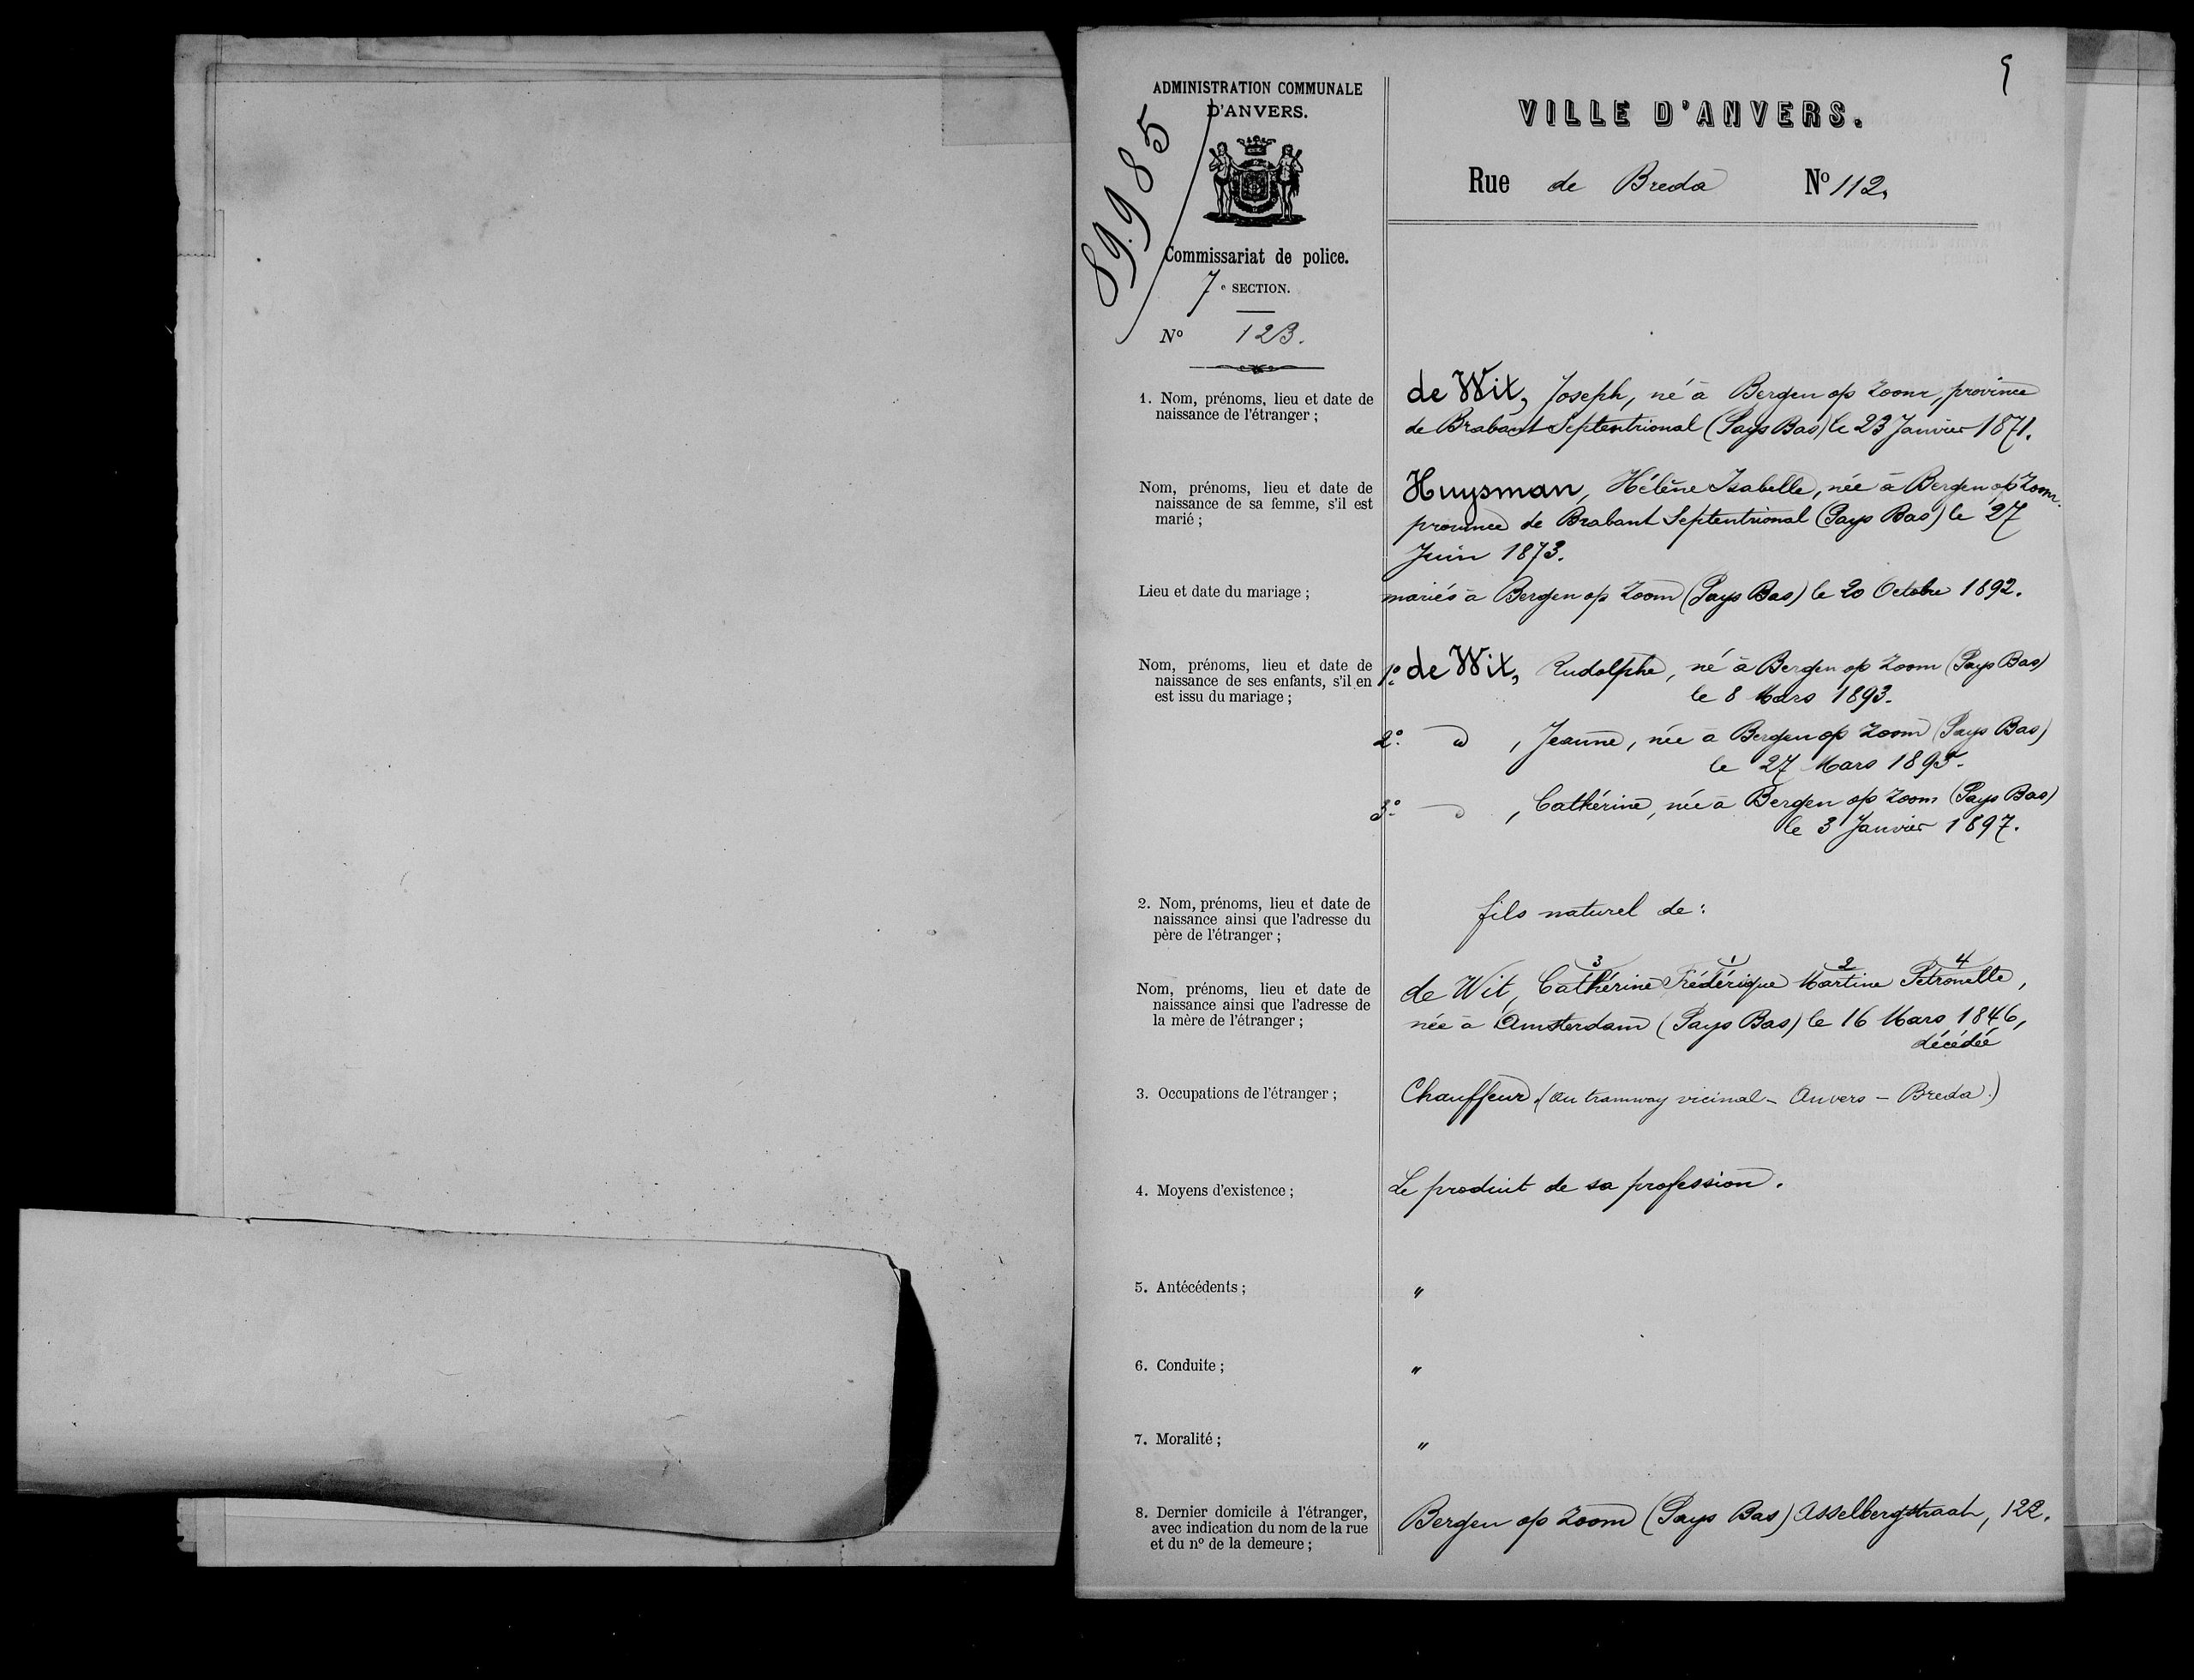 9
ADMINISTRATION COMMUNALE
D'ANVERS.
89985
Commissariat de police.
7e SECTION.
No 123.
VILLE D'ANVERS.
Rue de Breda No 112,
1. Nom, prénoms, lieu et date de
naissance de l'étranger ;
de Wit, Joseph, né à Bergen op Zoom, province
de Brabant Septentrional (Pays Bas) le 23 Janvier 1871.
Nom, prénoms, lieu et date de
naissance de sa femme, s'il est
marié ;
Huysman, Hélène Isabelle, née à Bergen op Zoom.
province de Brabant Septentrional (Pays Bas) le 27
Juin 1873.
Lieu et date du mariage ;
mariés à Bergen op Zoom (Pays Bas) le 20 Octobre 1892.
Nom, prénoms, lieu et date de
naissance de ses enfants, s'il en
est issu du mariage ;
1o. de Wit, Rudolphe, né à Bergen op Zoom (Pays Bas)
le 8 Mars 1893.
2o. d , Jeanne, née à Bergen op Zoom (Pays Bas)
le 27 Mars 1895.
3o. d , Cathérine, née à Bergen op Zoom (Pays Bas)
le 3 Janvier 1897.
2. Nom, prénoms, lieu et date de
naissance ainsi que l'adresse du
père de l'étranger ;
fils naturel de :
Nom, prénoms, lieu et date de
naissance ainsi que l'adresse de
la mère de l'étranger ;
3 1 2 4
de Wit, Cathérine Frédérique Martine Petronelle,
née à Amsterdam (Pays Bas) le 16 Mars 1846,
décédée
3. Occupations de l'étranger ;
Chauffeur. (au tramway vicinal - Anvers - Breda.)
4. Moyens d'existence ;
Le produit de sa profession.
5. Antécédents ;
"
6. Conduite ;
"
7. Moralité ;
"
8. Dernier domicile à l'étranger,
avec indication du nom de la rue
et du no de la demeure ;
Bergen op Zoom (Pays Bas) Asselbergstraat, 122.